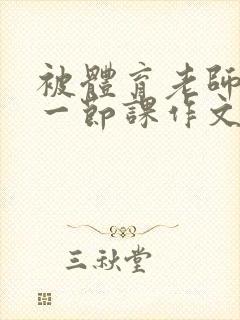 被體育老師
一節課作文
三秋堂